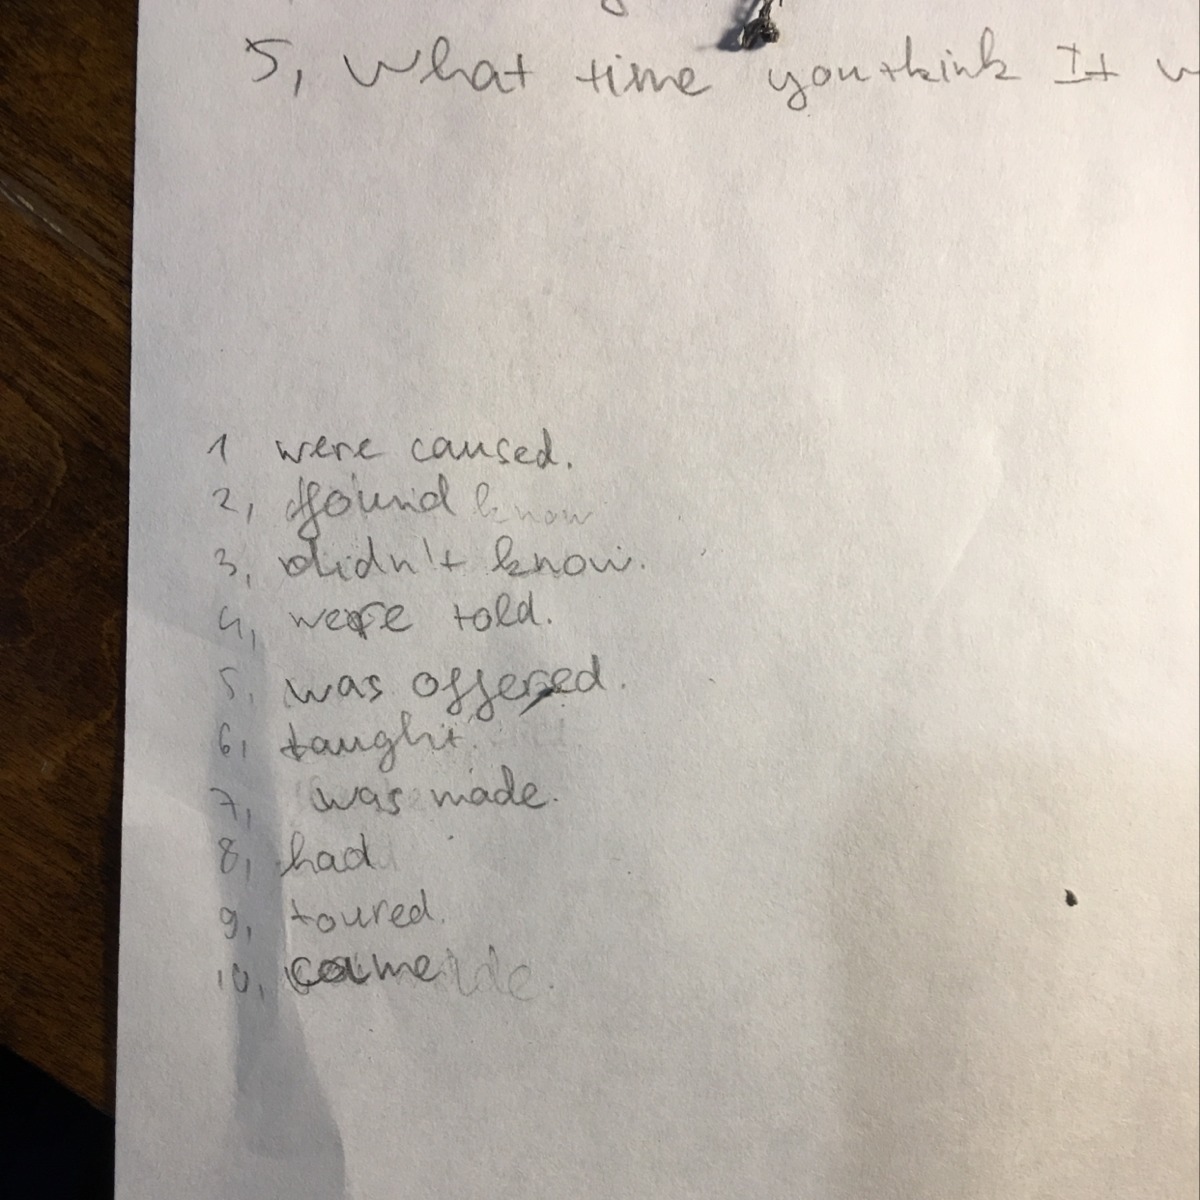 5, What time you think It
1 were caused.
2, found know
3, didn't know.
4, were told.
5. was offered.
6, taught.
7, was made.
8, had
9, toured.
10, came